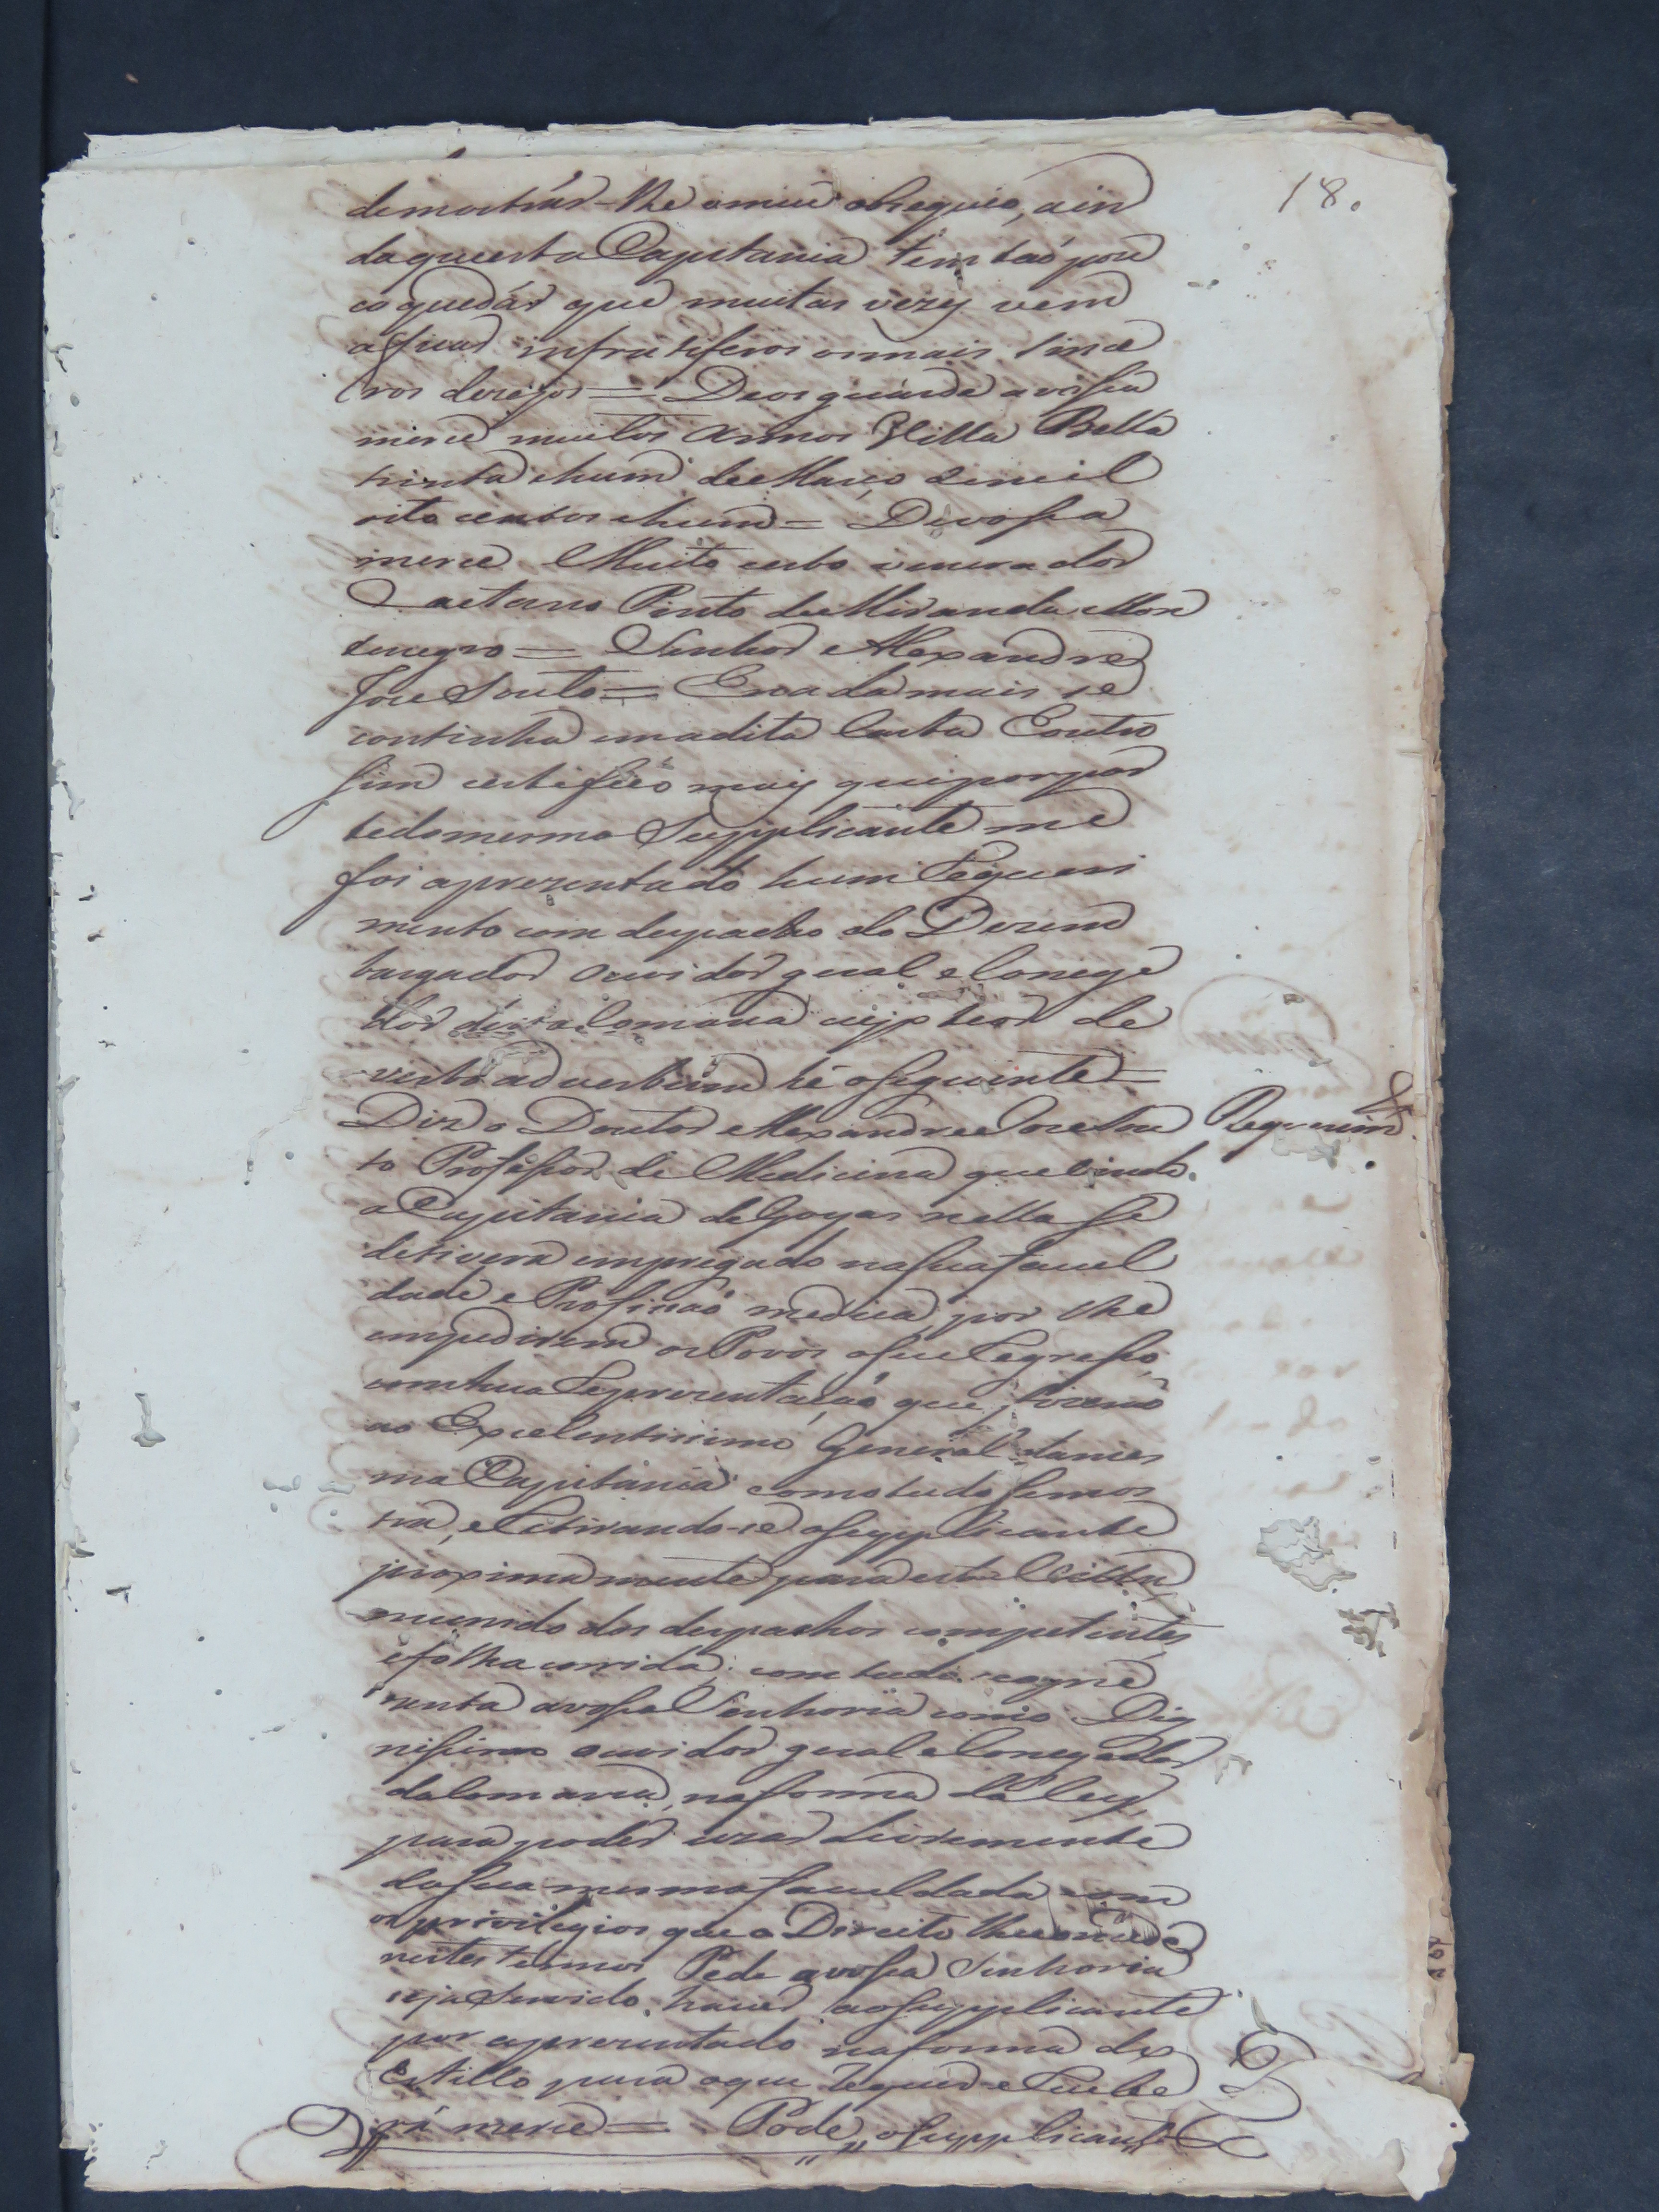 18.
demostrár-lhe o meu obzequio, ain
da que esta Capitania tem taõ pou
co que dár que muitas vezes vem
a ficar infrutiferos os mais since
ros dezejos = Deos guarde a vossa
merce muitos annos Villa Bella
trinta e hum de Março de mil
oito centos e hum = De vossa
merce Muito certo venerador
Caetano Pinto de Miranda Mon
tenegro = Senhor Alexandre
Joze Souto = E nada mais se
continha em a dita Carta E outro
sim certifico mais que por par
te do mesmo Supplicante me
foi aprezentado hum Requeri
mento com despacho do Dezem
bargador Ouvidor geral e Correge
dor desta Comarca cujo theor de
verbo ad verbum hé o seguinte =
Diz o Doutor Alexandre Joze Sou
to Professor de Medicina que vindo
Requerim.to
a Capitania de Goyas nella se
detivera empregado na sua facul
dade e Profissaõ medica, por lhe
empedirem os Povos o seu Regresso,
com hua Reprezentaçaõ que fizeraõ
ao Excelentissimo General da mes
ma Capitania como tudo se mos
tra, e Retirando-se o supplicante
proximamente para esta Villa
munido dos despachos competentes
e folha corrida; com tudo se apre
zenta a vossa Senhoria como Dig
nissimo Ouvidor geral e Corregedor
da Comarca, na forma da Ley,
para poder uzar livremente
da sua mesma faculdada com
os privilegios que o Direito lhe concede
nestes termos Pede a vossa Senhoria
seja Servido haver ao supplicante
por aprezentado na forma do
Estillo para o que Requer e Recebe
rá merce = Pode o supplicante